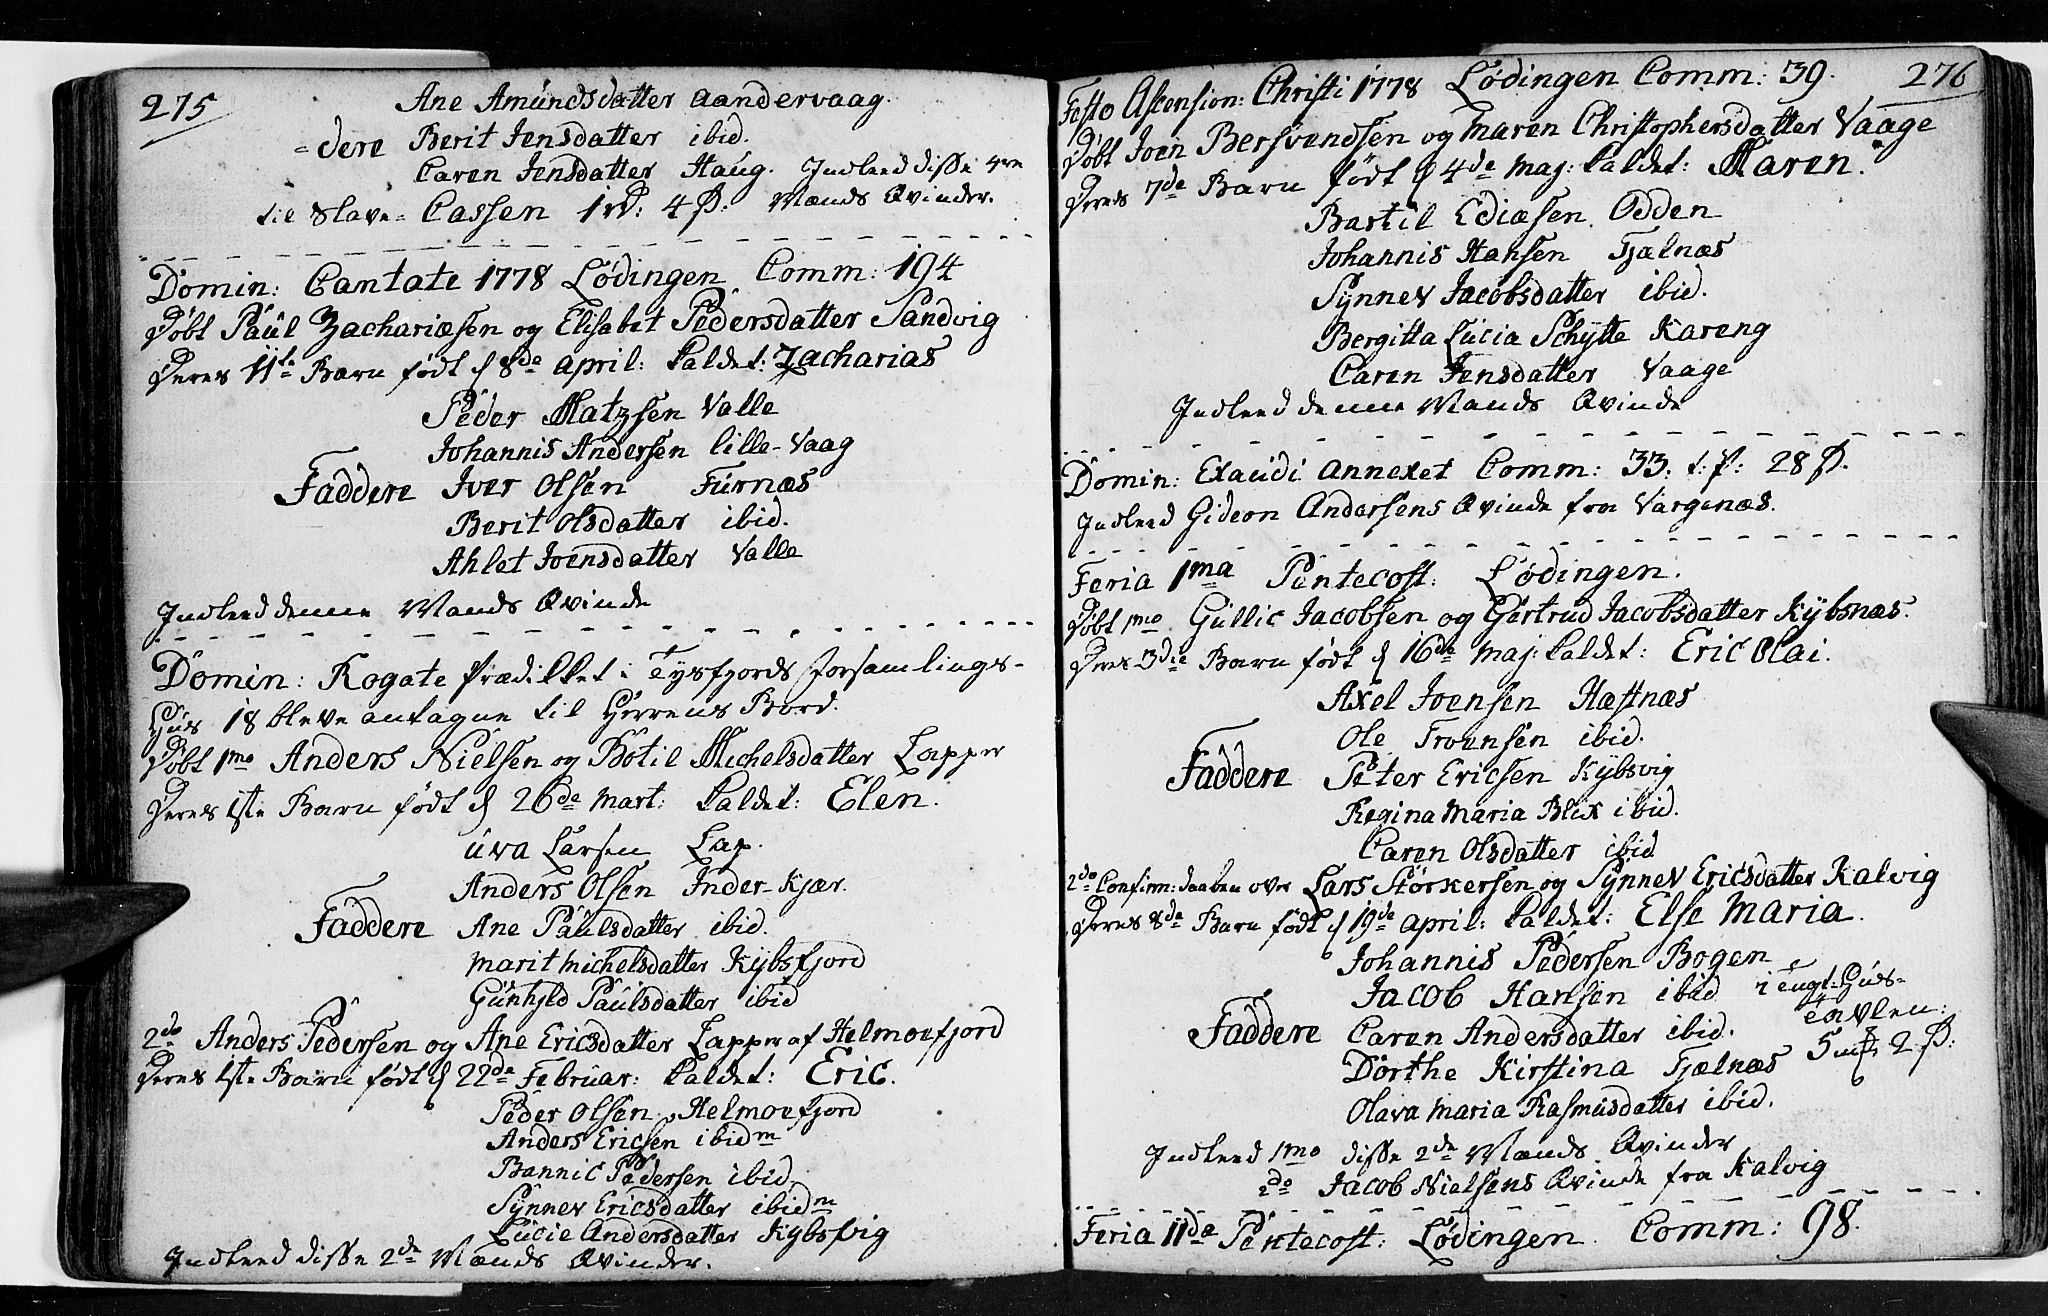 275
Ane Amundsdatter Aandervaag.
=dere Berit Jensdatter ibid.
Caren Jensdatter Haug. Indleed disse 4re
til Slave= Cassen 1 rd: 4 ß: Mænds Qvinder.
Domin: Cantate 1778 Lødingen Comm: 194
Døbt Paul Zachariæsen og Elisabet Pedersdatter Sandvig
Deres 11te Barn født d 8de April: kaldet: Zacharias
Peder Matzsen Valle
Johannis Andersen Lille-Vaag
Faddere Iver Olsen Furnæs
Berit Olsdatter ibid.
Ahlet Joensdatter Valle
Indleed denne Mands Qvinde
Domin: Rogate Prædikket i Tysfjords Forsamlings-
Huus 18 bleve antagne til Herrens Bord.
Døbt 1mo Anders Nielsen og Botil Michelsdatter Lapper
Deres 1ste Barn født d 26de Mart: kaldet: Elen.
Uva Larsen Lap.
Anders Olsen Inder-Kjær.
Faddere Ane Paulsdatter ibid.
Marit Michelsdatter Kybsfjord
Gunhyld Paulsdatter ibid
2do Anders Pedersen og Ane Ericsdatter Lapper af Helmoefjord
Deres 1ste Barn født d 22de Februar: kaldet: Eric.
Peder Olsen Helmoefjord
Anders Ericsen ibidm
Bannic Pedersen ibid.
Synnev Ericsdatter ibidm
Lucie Andersdatter Kybsvig
Indleed disse 2de Mænds Qvinder.
276
Festo Ascension: Christi 1778 Lødingen Comm: 39.
Døbt Joen Bersvendsen og Maren Christophersdatter Vaage
Deres 7de Barn født d 4de Maj: kaldet: Maren.
Bastil Ediæsen Odden
Johannis Hansen Tjælnæs
Synnev Jacobsdatter ibid.
Bergitta Lucia Schytte Kareng
Caren Jensdatter Vaage
Indleed denne Mands Qvinde
Domin: Exaudi Annexet Comm: 33. t: p: 28 ß.
Indleed Gideon Andersens Qvinde fra Vargenæs.
Feria 1ma Pentecost: Lødingen.
Døbt 1mo Gullic Jacobsen og Gertrud Jacobsdatter Kybsnæs.
Deres 3die Barn født d 16de Maj: kaldet: Eric Olai.
Axel Joensen Hæstnæs
Ole Troensen ibid.
Faddere Peter Ericsen Kybsvig
Regina Maria Blix ibid.
Caren Olsdatter ibid
2do Confirm: Daaben over Lars Størkersen og Synnev Ericsdatter Kalvig
Deres 8de Barn født d 19de April: kaldet: Else Maria.
Johannis Pedersen Bogen
Jacob Hansen ibid i Tugt-Huus-
Faddere Caren Andersdatter ibid. tavlen:
Dorthe Kirstina Tjælnæs 5 mk 2 ß:
Olava Maria Rasmusdatter ibid.
Indleed 1mo disse 2de Mænds Qvinder
2do Jacob Nielsens Qvinde fra Kalvig
Feria 11de Pentecost: Lødingen Comm: 98.